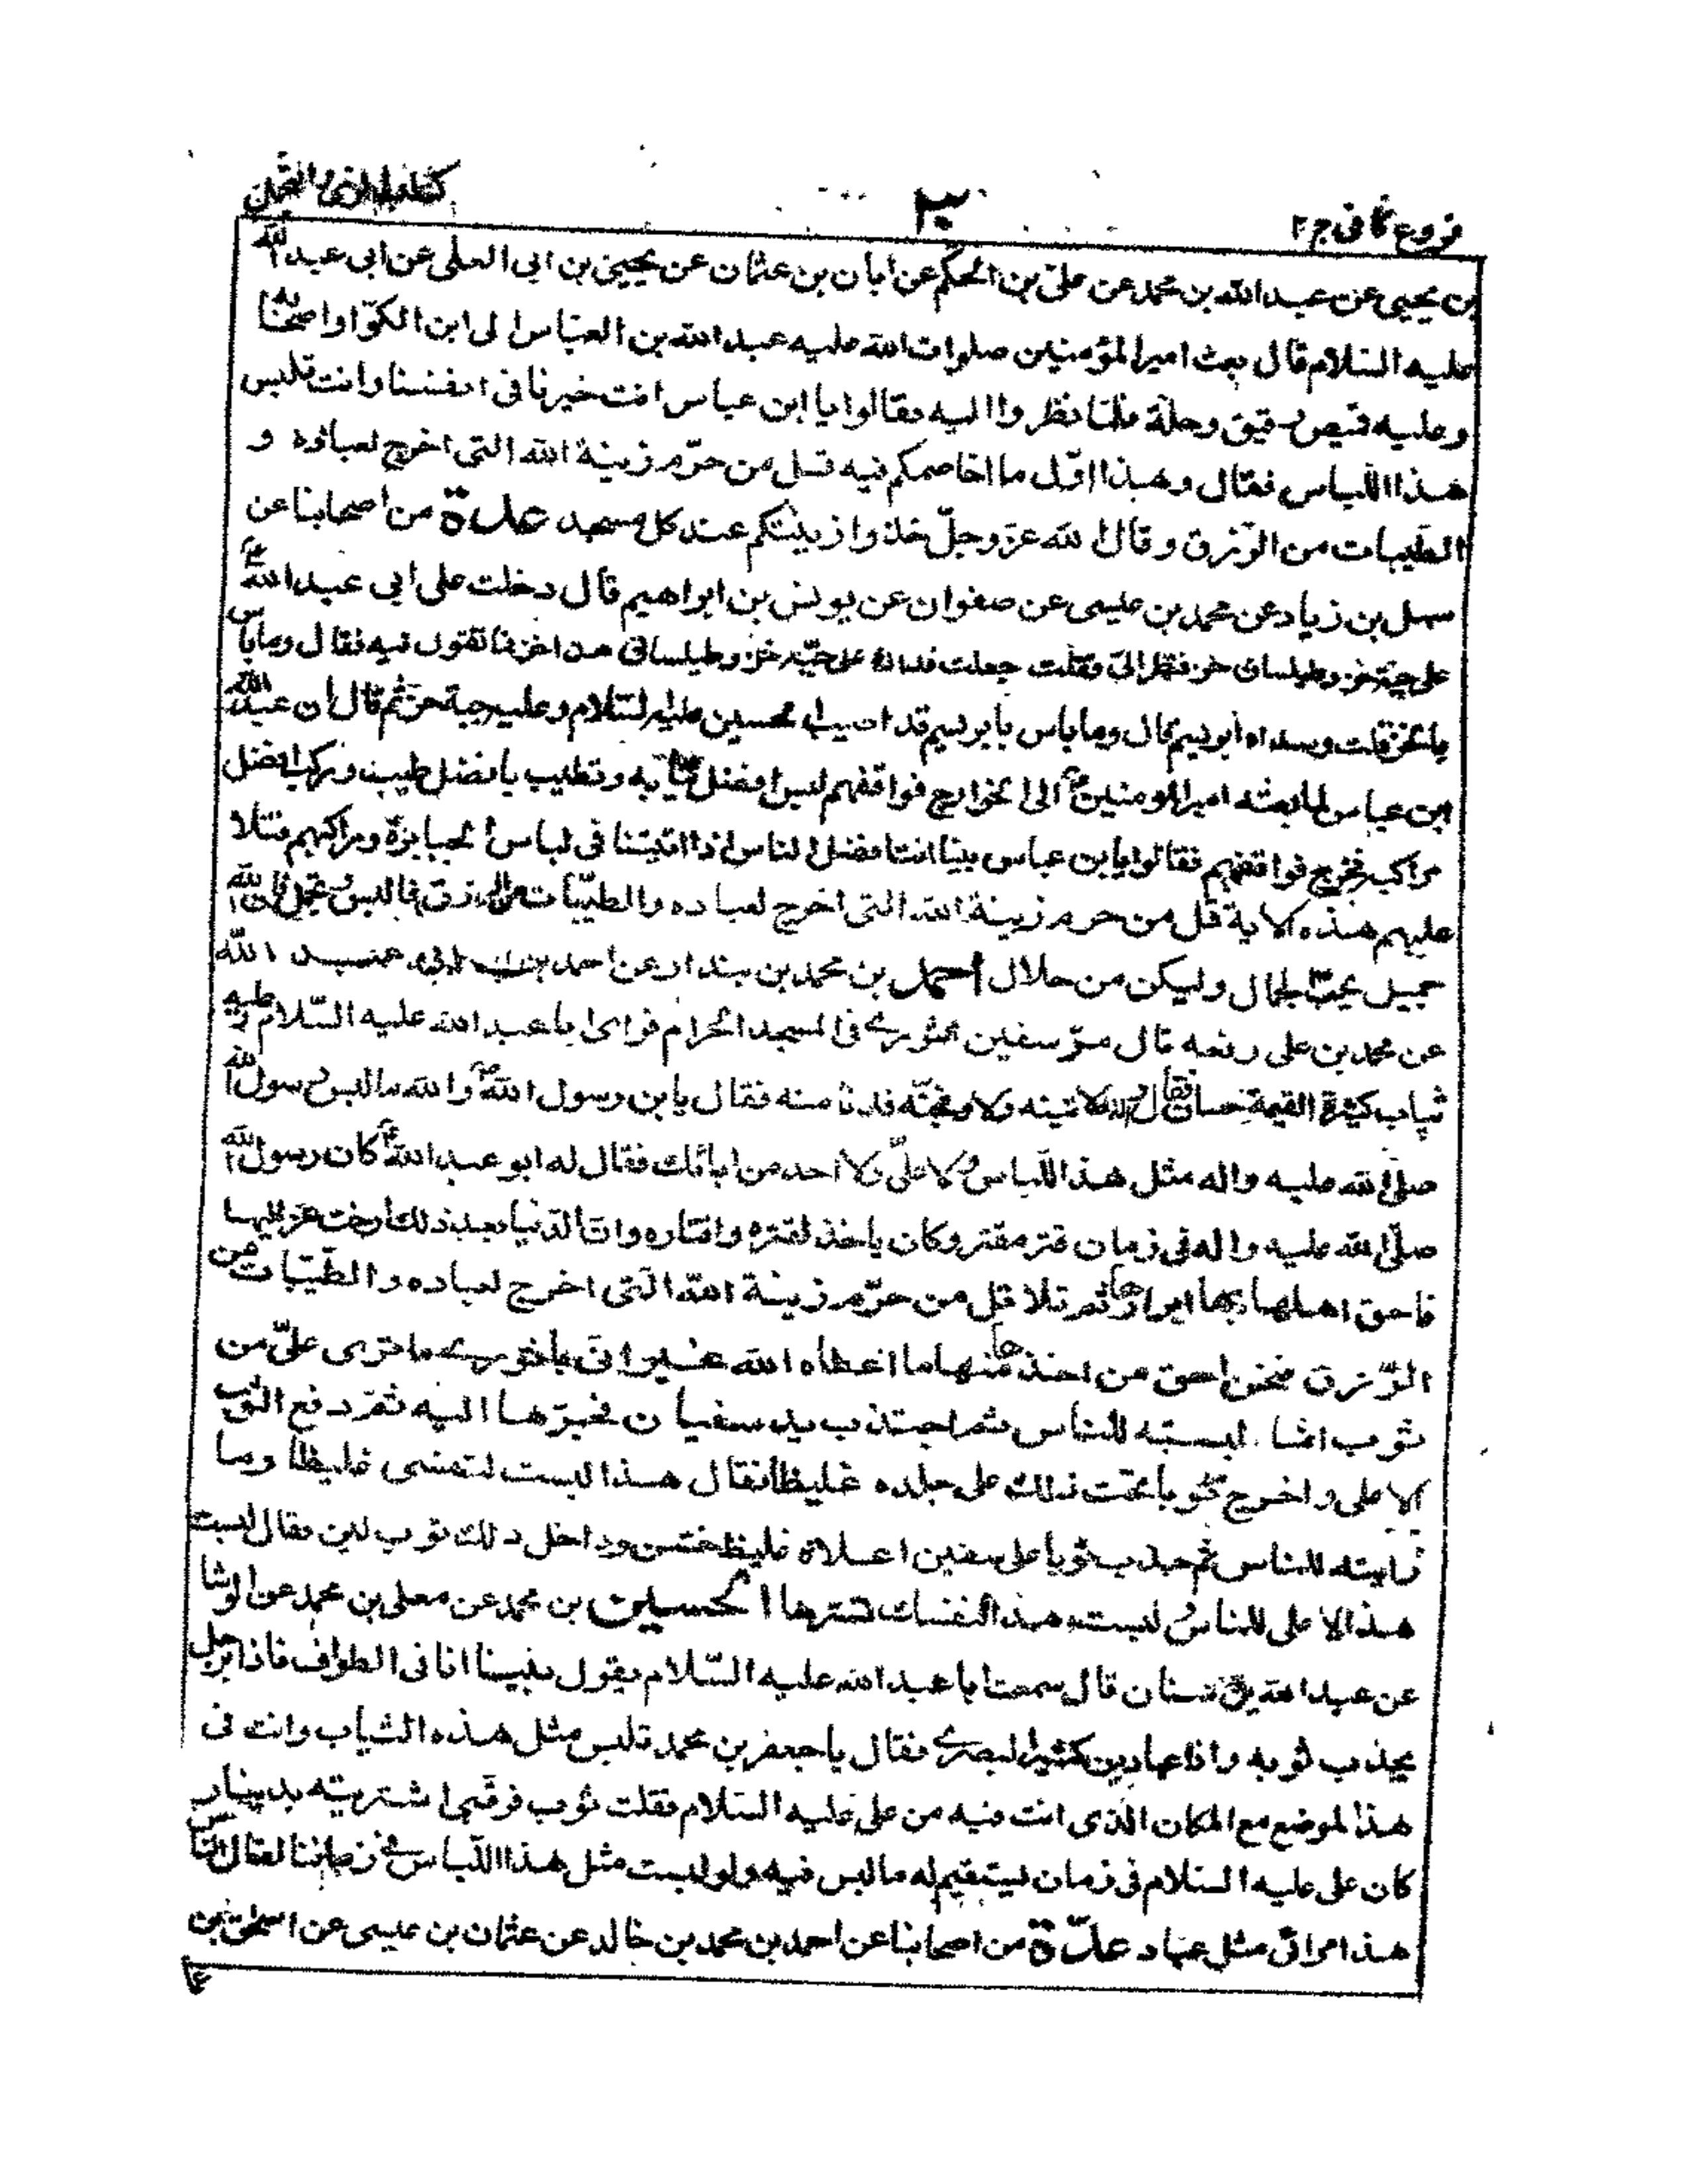 فروع كافى ج ٢
٣
كتاب الزى والتجمل
بن يحيى عن عبد الله بن محمد عن على بن الحكم عن ابان بن عثمان عن يحيى بن ابى العلى عن ابى عبد الله
عليه السلام قال بعث امير المؤمنين صلوات الله عليه عبد الله بن العباس الى ابن الكوا واصحابه
وعليه قميص رقيق وحلة فلما نظروا اليه فقالوا يا ابن عباس انت خيرنا فى انفسنا وانت تلبس
هذا اللباس فقال وهذا اول ما اخاصمكم فيه قل من حرم زينة الله التى اخرج لعباده و
الطيبات من الرزق وقال الله عز وجل خذوا زينتكم عند كل مسجد عدة من اصحابنا عن
سهل بن زياد عن محمد بن عيسى عن صفوان عن يونس بن ابراهيم قال دخلت على ابى عبد الله
على جبة خز وطيلسان خز فنظر الى فقلت جعلت فداك على جبة خز وطيلسانى هذا خز فما تقول فيه فقال وما باس
بالخز قلت وسداه ابريسم قال وما باس بابريسم قد اصيب الحسين عليه السلام وعليه جبة خز ثم قال ان عبد الله
بن عباس لما بعثه امير المومنين الى الخوارج فواقفهم لبس افضل ثيابه وتطيب بافضل طيبه وركب افضل
مراكبه فخرج فواقفهم فقالوا يا بن عباس بينا انت افضل الناس اذا اتيتنا فى لباس الجبابرة ومراكبهم فتلا
عليهم هذه الاية قل من حرم زينة الله التى اخرج لعباده والطيبات من الرزق فالبس وتجمل فان الله
جميل يحب الجمال وليكن من حلال احمد بن محمد بن بندار عن احمد بن ابى عبد الله
عن محمد بن على رفعه قال مر سفين الثورى فى المسجد الحرام فراى ابا عبد الله عليه السلام وعليه
ثياب كثيرة القيمة حسان فقال والله لاتينه ولاوبخنه فدنا منه فقال يا بن رسول الله والله ما لبس رسول الله
صلى الله عليه واله مثل هذا اللباس ولا على ولا احد من ابائك فقال له ابو عبد الله كان رسول الله
صلى الله عليه واله فى زمان قتر مقتر وكان ياخذ لقتره واقتاره وان الدنيا بعد ذلك ارخت عزاليها
فاحق اهلها بها ابرارها ثم تلا قل من حرم زينة الله التى اخرج لعباده والطيبات من
الرزق فنحن احق من اخذ منها ما اعطاه الله غير انى يا ثورى ما ترى على من
ثوب انما لبسته للناس ثم اجتذب يد سفيان فجرها اليه ثم رفع الثوب
الاعلى واخرج ثوبا تحت ذلك على جلده غليظا فقال هذا لبست لنفسى غليظا وما
رايته للناس ثم جذب ثوبا على سفين اعلاه غليظ خشن وداخل ذلك ثوب لين فقال لبست
هذا الاعلى للناس ولبست هذا لنفسك تسترها الحسين بن محمد عن معلى بن محمد عن الوشا
عن عبد الله بن سنان قال سمعت ابا عبد الله عليه السلام يقول بينا انا فى الطواف فاذا برجل
يجذب ثوبه واذا عباد بن كثير البصرى فقال يا جعفر بن محمد تلبس مثل هذه الثياب وانت فى
هذا الموضع مع المكان الذى انت فيه من على عليه السلام فقلت ثوب فرقبى اشتريته بدينار
كان على عليه السلام فى زمان يستقيم له ما لبس فيه ولو لبست مثل هذا اللباس فى زماننا لقال الناس
هذا مرائى مثل عباد عدة من اصحابنا عن احمد بن محمد بن خالد عن عثمان بن عيسى عن اسحاق بن
عا